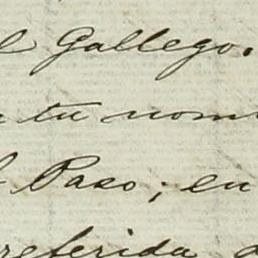 l Gallego.
tu nom
l Paso; en
referida d